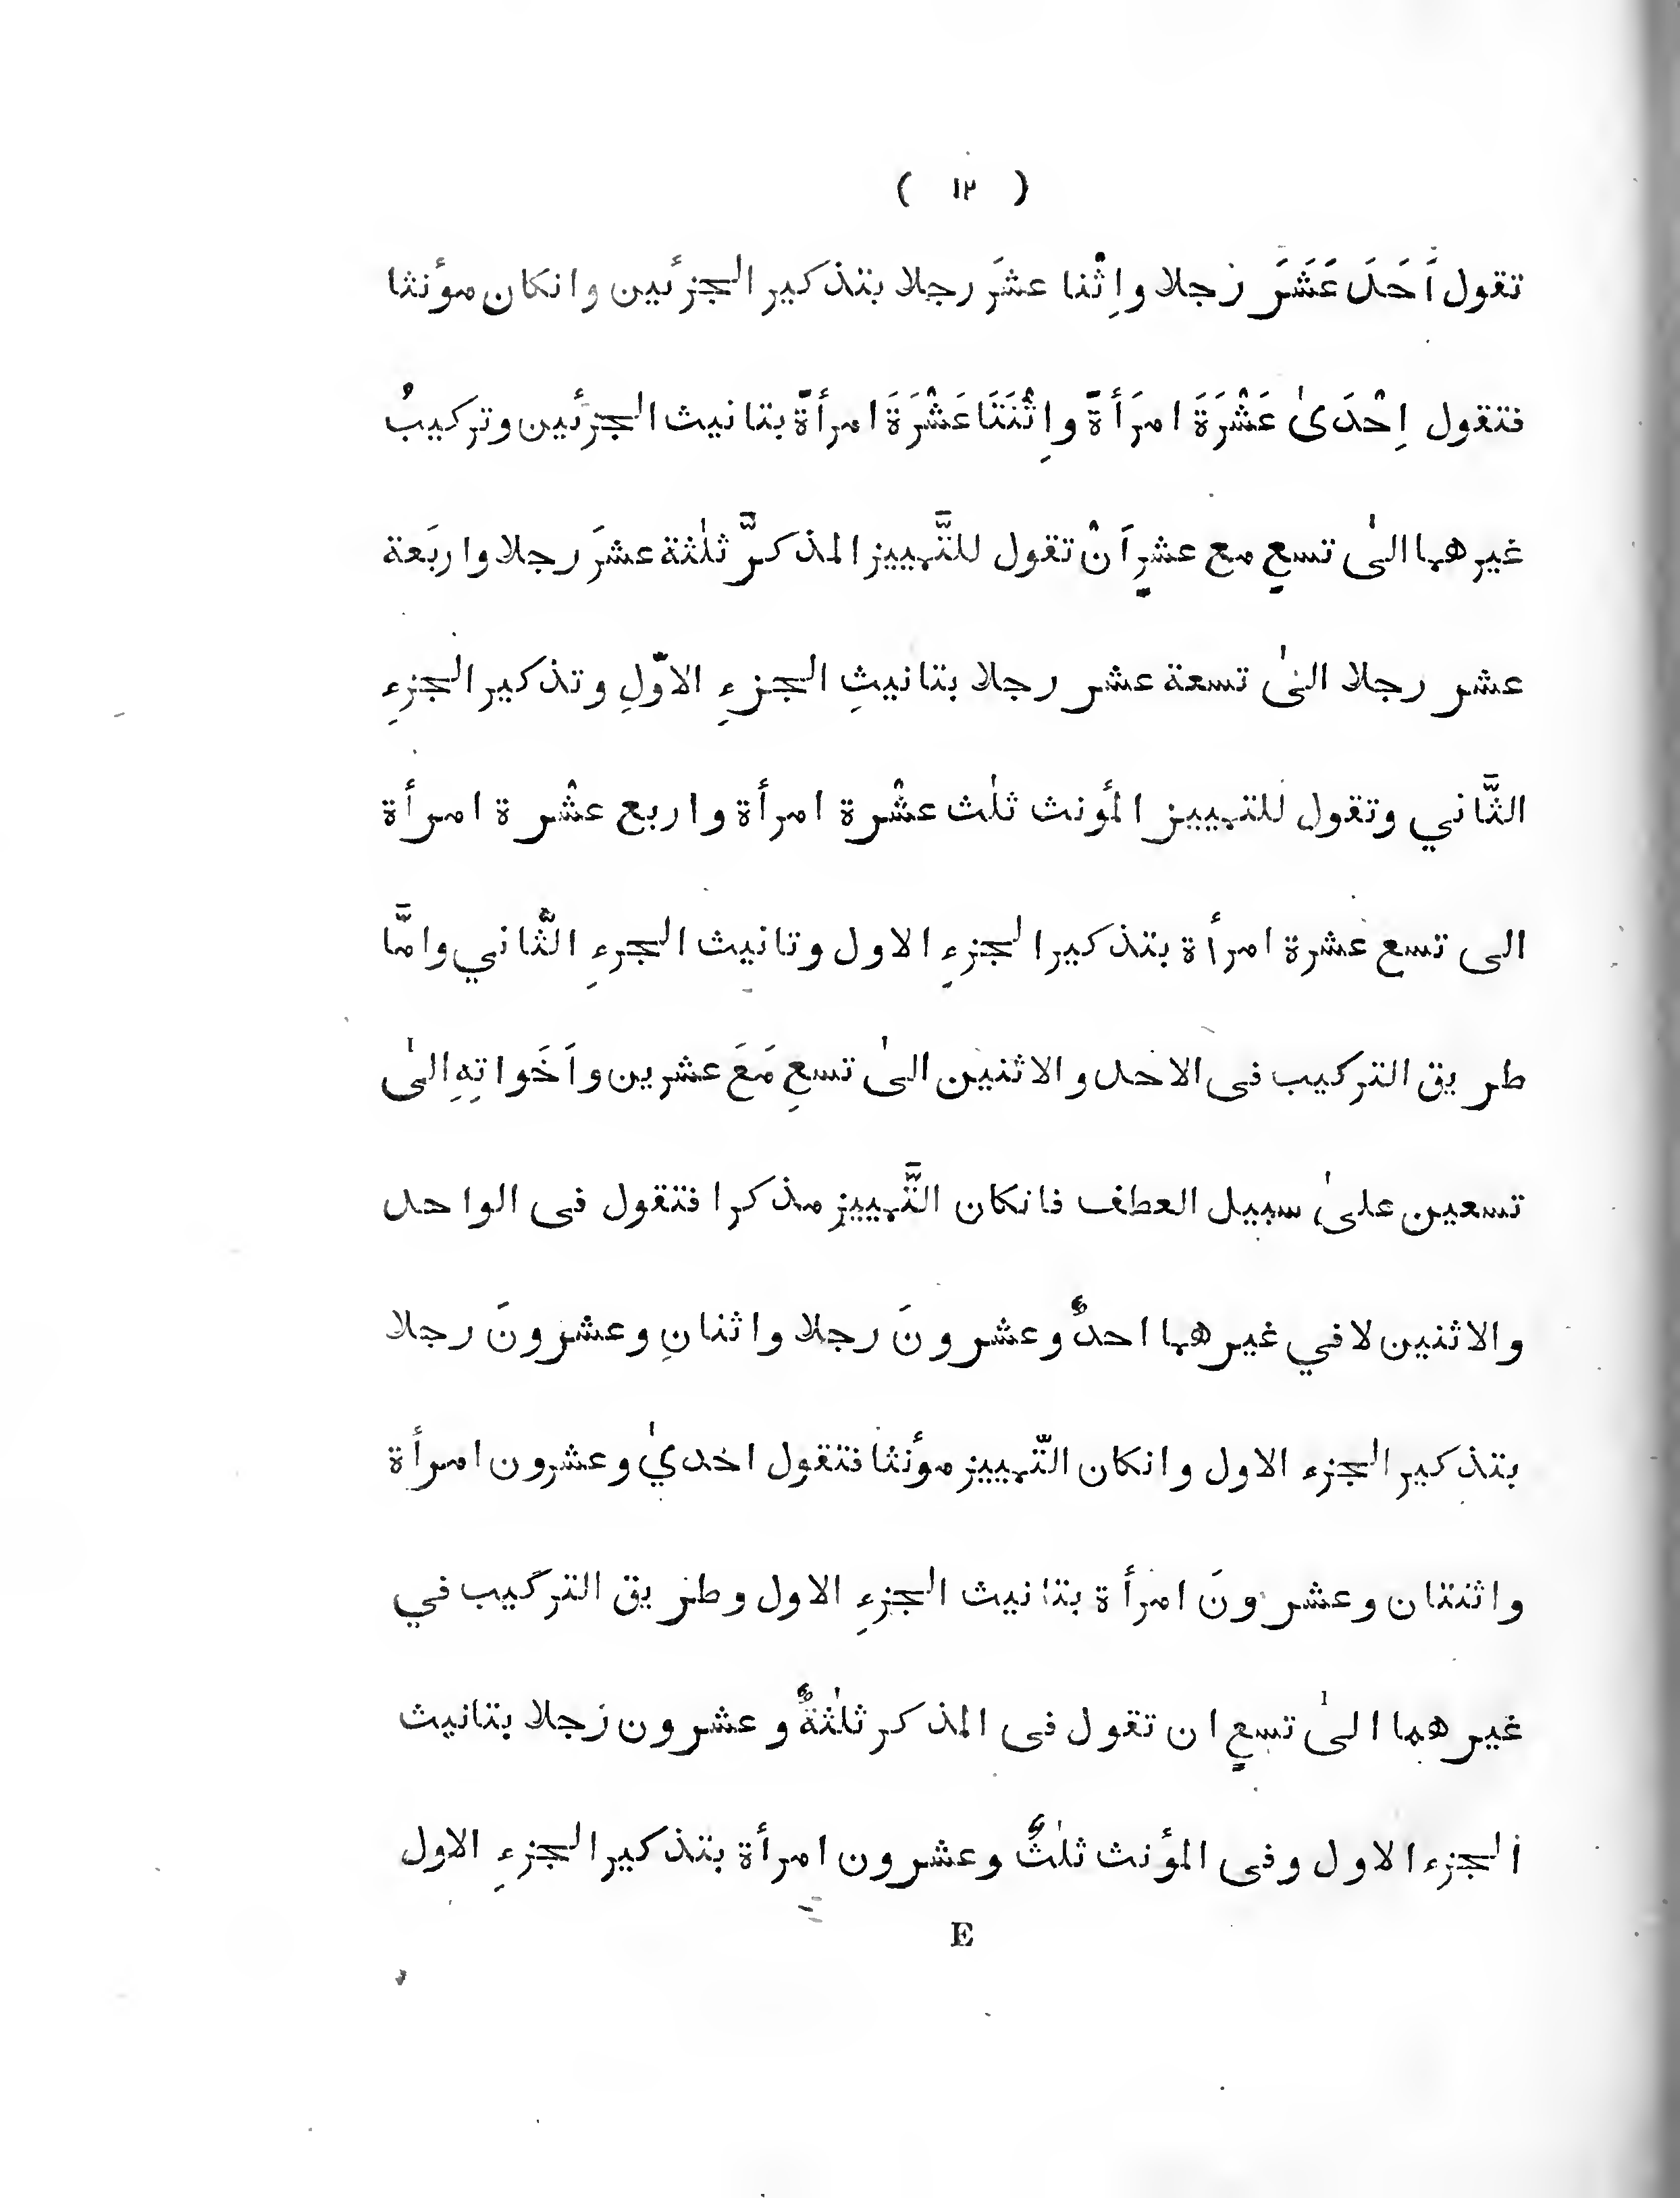 ( ١٣ )
تقول اَحَدَ عَشَرَ رجلا واِثْنا عشَر رجلا بتذكير الجزئين وانكان مؤنثا
فتقول اِحْدَىٰ عَشْرَةَ امرَأةً واِثْنَتَا عَشْرَةَ امرأةً بتانيث الجزئين وتركيبُ
غيرهما الىٰ تسعٍ مع عشرٍ اَنْ تقول للتَّمييز المذكرَّ ثلٰثة عشرَ رجلا واربَعة
عشر رجلا الىٰ تسعة عشر رجلا بتانيثِ الجزءِ الاوّلِ وتذكير الجزءِ
الثَّاني وتقول للتمييز المؤنث ثلٰث عشْرة امرأة واربع عشْرة امرأة
الى تسع عشرة امرأة بتذكير الجزءِ الاول وتانيث الجزءِ الثَّاني وامَّا
طريق التركيب فى الاحد والاثنين الىٰ تسعِ مَعَ عشرين واَخَواتِهِ الىٰ
تسعين علىٰ سبيل العطف فانكان التَّمييز مذكرا فتقول فى الواحد
والاثنين لا في غيرهما احدٌ وعشرونَ رجلا واثنانِ وعشرونَ رجلا
بتذكير الجزء الاول وانكان التّمييز مؤنثا فتقول احديٰ وعشرون امرأة
واثنتان وعشرونَ امرأة بتانيث الجزءِ الاول وطريق التركيب في
غيرهما الىٰ تسعٍ ان تقول فى المذكر ثلٰثةٌ وعشرون رجلا بتانيث
الجزء الاول وفى المؤنث ثلٰثٌ وعشرون امرأة بتذكير الجزءِ الاول
E